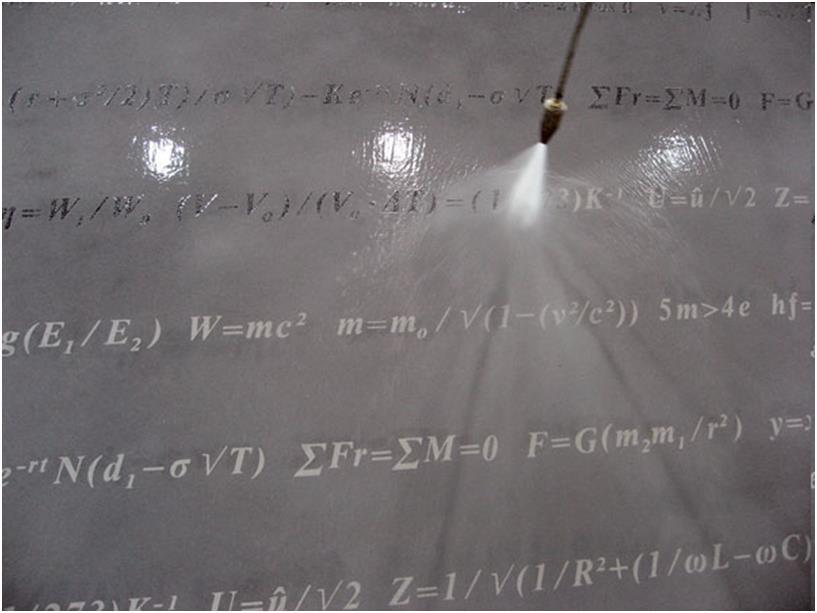 (r+σ²/2)T)/σ√T)−Ke⁻ʳᵗN(d₁−σ√T) ΣFr=ΣM=0 F=G
η=W₁/W₀ (V−V₀)/(V₀·ΔT)=(1/273)K⁻¹ U=û/√2 Z=
g(E₁/E₂) W=mc² m=m₀/√(1−(v²/c²)) 5m>4e hf=
e⁻ʳᵗN(d₁−σ√T) ΣFr=ΣM=0 F=G(m₂m₁/r²) y=
1/273)K⁻¹ U=û/√2 Z=1/√(1/R²+(1/ωL−ωC)